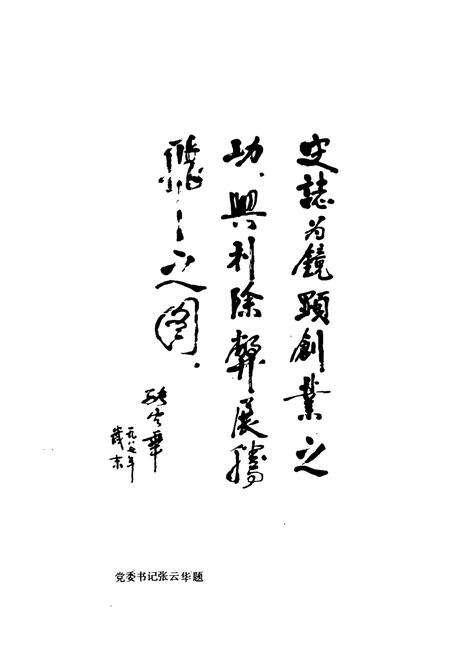 史誌为鏡顕創業之
功．興利除弊展騰
飛之図．
張云華
一九八七年
歲末
党委书记张云华题